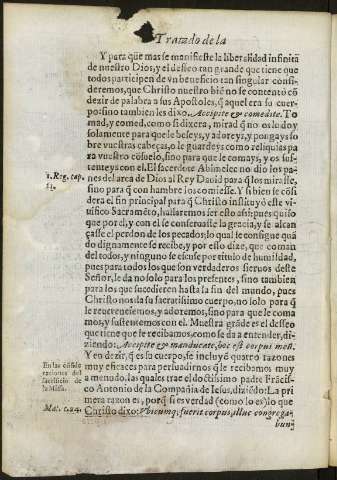 Tratado de la
Y para que mas se manifieste la liberalidad infinita
de nuestro Dios, y el desseo tan grande que tiene que
todos participen de vn beneficio tan singular consi-
deremos, que Christo nuestro biē no se contentò cō
dezir de palabra a sus Apostoles, q̃ aquel era su cuer-
po: sino tambien les dixo. Accipite & comedite. To
mad, y comed, como si dixera, mirad q̃ no os lo doy
solamente para que le beseys, y adoreys, y pongays so
bre vuestras cabeças, o le guardeys como reliquias pa
ra vuestro cōsuelo, sino para que le comays, y os sus-
1. Reg. cap.
tenteys con el. El sacerdote Abimelec no dio los pa-
nes del arca de Dios al Rey Dauid para q̃ los mirasse,
21.
sino para q̃ con hambre los comiesse. Y si bien se cōsi
dera el fin principal para q̃ Christo instituyó este di-
uisimo Sacramēto, hallaremos ser esto assi: pues quiso
que por el, y con el se conseruasse la gracia, y se alcan
çasse el perdon de los pecados; lo qual se consigue quā
do dignamente se recibe, y por esso dize, que coman
del todos, y ninguno se escuse por titulo de humildad,
pues para todos los que son verdaderos sieruos deste
Señor, le da no solo para los presentes, sino tambien
para los que sucedieren hasta la fin del mundo, pues
Christo nos da su sacratissimo cuerpo, no solo para q̃
le reuerenciemos, y adoremos, sino para que le coma
mos, y sustentemos con el. Muestra grāde es el desseo
que tiene que le recibamos, como se da a entender, di-
ziendo: Accipite & manducate, hoc est corpus meū.
En las cōside
raciones del
sacrificio de
la Missa.
Y en dezir, q̃ es su cuerpo, se incluyē quatro razones
muy eficaces para persuadirnos q̃ le recibamos muy
a menudo, las quales trae el doctissimo padre Frācis-
co Antonio de la Compañia de Iesus, diziēdo: La pri
mera razon es, porq̃ si es verdad (como lo es) lo que
Mat. c. 24.
Christo dixo: Vbicumq; fuerit corpus, illuc congrega
bun-